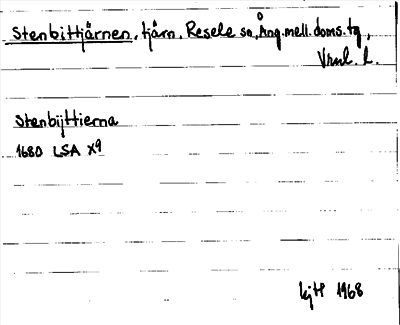 Stenbittjärnen, tjärn, Resele sn, Ång. mell. doms. tg,
Vrnl. l.
Stenbijttierna
1680 LSA X9
1968